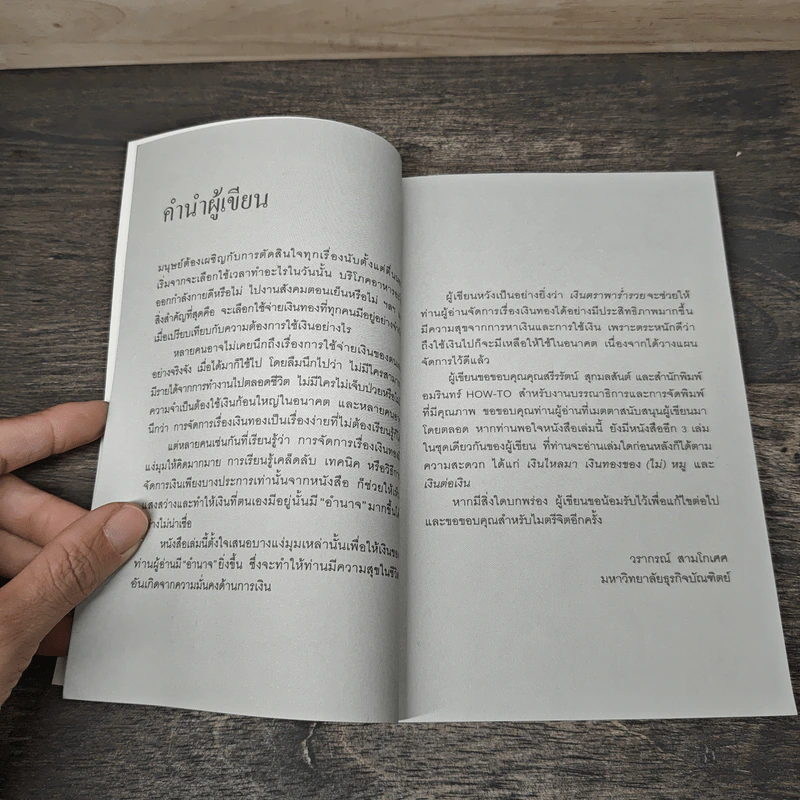 คำนำผู้เขียน
มนุษย์ต้องเผชิญกับการตัดสินใจทุกเรื่องนับตั้งแต่ตื่น
เริ่มจากจะเลือกใช้เวลาทำอะไรในวันนั้น บริโภคอาหาร
ออกกำลังกายดีหรือไม่ ไปงานสังคมตอนเย็นหรือไม่ ฯลฯ
สิ่งสำคัญที่สุดคือ จะเลือกใช้จ่ายเงินทองที่ทุกคนมีอยู่อย่าง
เมื่อเปรียบเทียบกับความต้องการใช้เงินอย่างไร
หลายคนอาจไม่เคยนึกถึงเรื่องการใช้จ่ายเงินของ
อย่างจริงจัง เมื่อได้มาก็ใช้ไป โดยลืมนึกไปว่า ไม่มีใคร
มีรายได้จากการทำงานไปตลอดชีวิต ไม่มีใครไม่เจ็บป่วย
ความจำเป็นต้องใช้เงินก้อนใหญ่ในอนาคต และหลายคน
นึกว่า การจัดการเรื่องเงินทองเป็นเรื่องง่ายที่ไม่ต้องเรียนรู้
แต่หลายคนเช่นกันที่เรียนรู้ว่า การจัดการเรื่องเงินทอง
แง่มุมให้คิดมากมาย การเรียนรู้เคล็ดลับ เทคนิค หรือ
จัดการเงินเพียงบางประการเท่านั้นจากหนังสือ ก็ช่วยให้
แสงสว่างและทำให้เงินที่ตนเองมีอยู่นั้นมี “อำนาจ” มากขึ้น
ไม่น่าเชื่อ
หนังสือเล่มนี้ตั้งใจเสนอบางแง่มุมเหล่านั้นเพื่อให้เงิน
ท่านผู้อ่านมี “อำนาจ” ยิ่งขึ้น ซึ่งจะทำให้ท่านมีความสุขใน
อันเกิดจากความมั่นคงด้านการเงิน
ผู้เขียนหวังเป็นอย่างยิ่งว่า เงินตราพาร่ำรวยจะช่วยให้
ท่านผู้อ่านจัดการเรื่องเงินทองได้อย่างมีประสิทธิภาพมากขึ้น
มีความสุขจากการหาเงินและการใช้เงิน เพราะตระหนักดีว่า
ถึงใช้เงินไปก็จะมีเหลือให้ใช้ในอนาคต เนื่องจากได้วางแผน
จัดการไว้ดีแล้ว
ผู้เขียนขอขอบคุณคุณสรีรรัตน์ สุกมลสันต์ และสำนักพิมพ์
อมรินทร์ HOW-TO สำหรับงานบรรณาธิการและการจัดพิมพ์
ที่มีคุณภาพ ขอขอบคุณท่านผู้อ่านที่เมตตาสนับสนุนผู้เขียนมา
โดยตลอด หากท่านพอใจหนังสือเล่มนี้ ยังมีหนังสืออีก 3 เล่ม
ในชุดเดียวกันของผู้เขียน ที่ท่านจะอ่านเล่มใดก่อนหลังก็ได้ตาม
ความสะดวก ได้แก่ เงินไหลมา เงินทองของ (ไม่) หมู และ
เงินต่อเงิน
หากมีสิ่งใดบกพร่อง ผู้เขียนขอน้อมรับไว้เพื่อแก้ไขต่อไป
และขอขอบคุณสำหรับไมตรีจิตอีกครั้ง
วรากรณ์ สามโกเศศ
มหาวิทยาลัยธุรกิจบัณฑิตย์